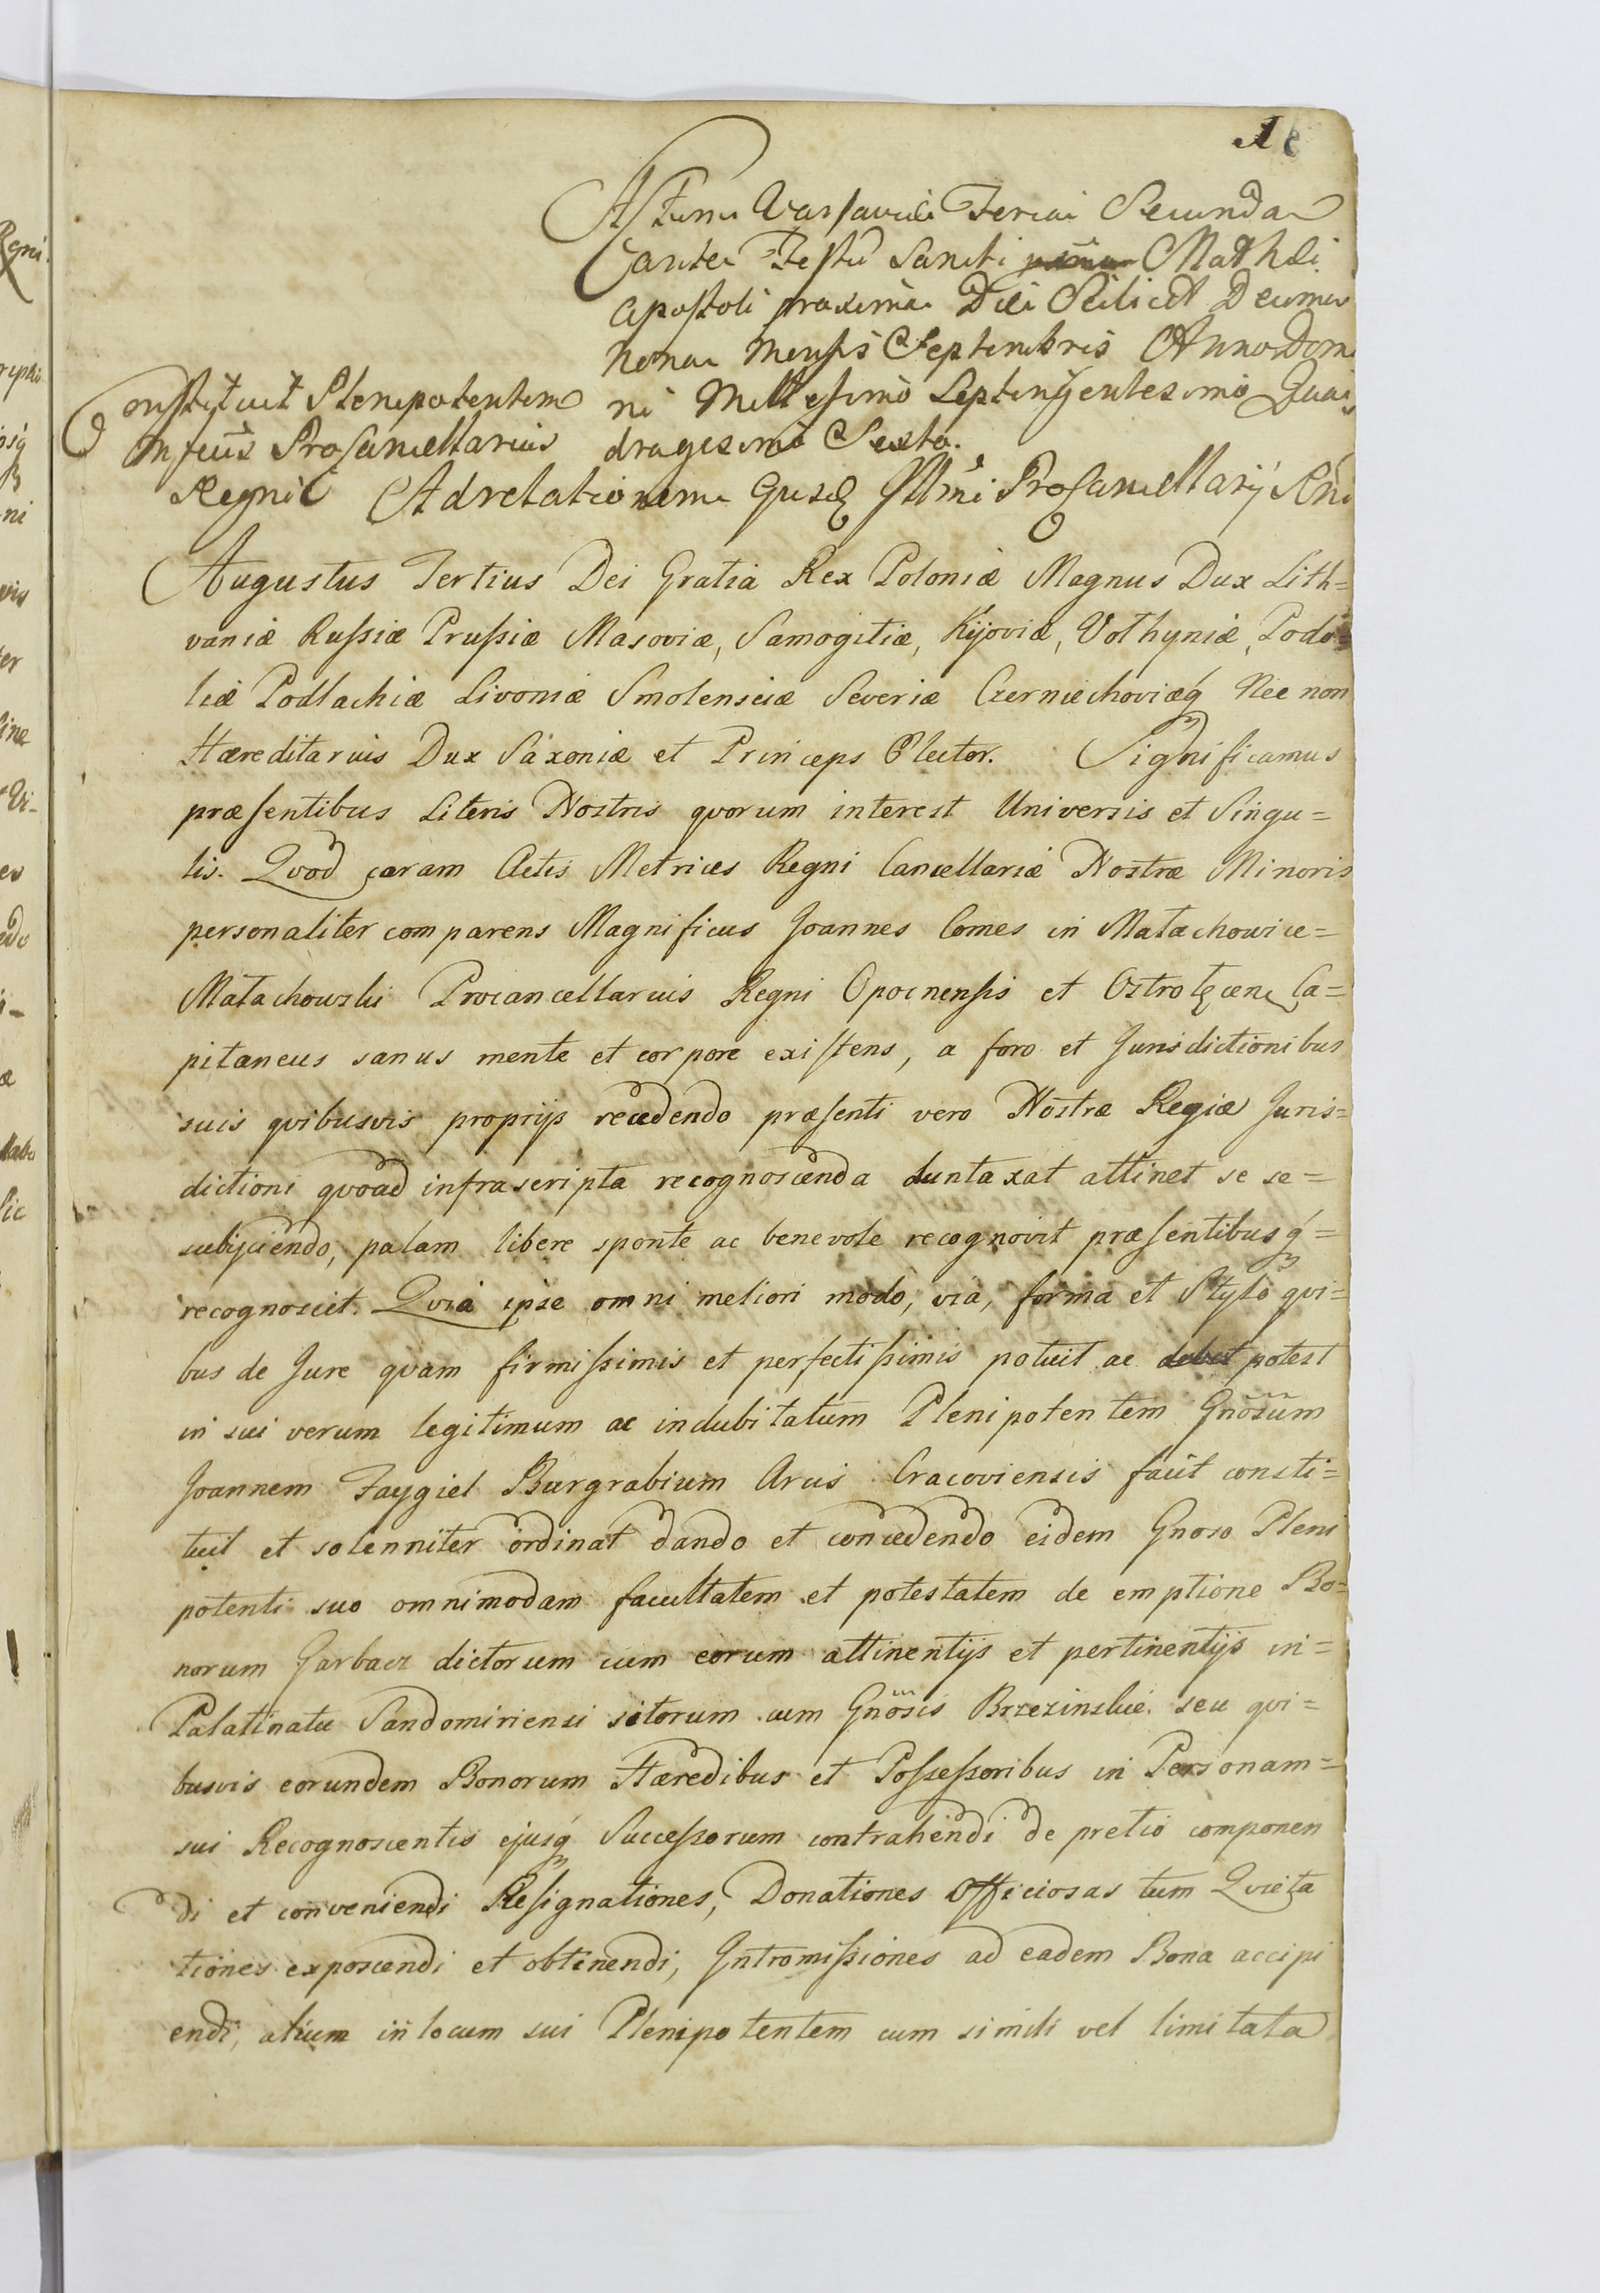 Actum Varsaviæ Feria Secunda
ante Festũ Sancti Mathæi
Apostoli proxima Die Scilicet Decima
Nona Mensis Septembris Anno Domi
ni Millesimo Septingentesimo Qua
dragesimo Sexto.
Constituit Plenipotentem
Procancellarius
Regni
Ad relationem Ejusd Illmi Procancellarij Rni
Augustus Tertius Dei Gratia Rex Poloniæ Magnus Dux Lith=
vaniæ Russiæ Prussiæ Masoviæ, Samogitiæ, Kijoviæ, Volhyniæ, Podo=
liæ Podlachiæ Livoniæ Smolensciæ Severiæ Czerniechoviæq Nec non
Hæreditarius Dux Saxoniæ et Princeps Elector. Significamus
præsentibus Literis Nostris qvorum interest Universis et Singu=
lis. Qvod coram Actis Metrices Regni Cancellariæ Nostræ Minoris
personaliter comparens Magnificus Joannes Comes in Małachowice=
Małachowski Procancellarius Regni Opocnensis et Ostrołęcen Ca=
pitaneus sanus mente et corpore existens, a foro et Jurisdictionibus
suis qvibusvis proprijs recedendo præsenti vero Nostræ Regiæ Juris=
dictioni qvoad infrascripta recognoscenda duntaxat attinet se se=
subijciendo, palam libere sponte ac benevole recognovit præsentibusq=
recognoscit. Qvia ipse omni meliori modo, via, forma et Stylo qvi=
bus de Jure qvam firmissimis et perfectissimis potuit ac debet potest
in sui verum legitimum ac indubitatum Plenipotentem Gnõsum
Joannem Faygiel Burgrabium Arcis Cracoviensis facit consti=
tuit et solenniter ordinat dando et concedendo eidem Gnoso Pleni
potenti suo omnimodam facultatem et potestatem de emptione Bo=
norum Garbacz dictorum cum eorum attinentijs et pertinentijs in=
Palatinatu Sandomiriensi sitorum cum Gnõsis Brzezinskie seu qvi=
busvis eorundem Bonorum Hæredibus et Possessoribus in Personam=
sui Recognoscentis ejusq Successorum contrahendi de pretio componen
di et conveniendi Resignationes, Donationes Officiosas tum Qvieta
tiones exposcendi et obtinendi, Intromissiones ad eadem Bona accipi
endi, alium in locum sui Plenipotentem cum simili vel limitata